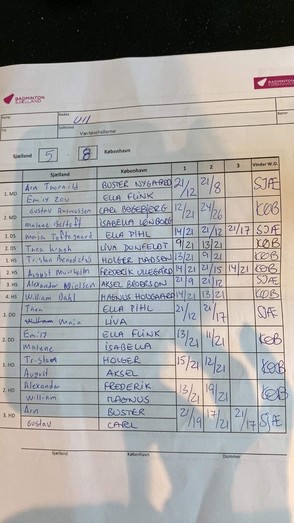 BADMINTON
SJÆLLAND
BADMINTON
U11
Sjælland 5 8 København
Sjælland København 1 2 3 Vinder W.O.
1. MD Arn BUSTER NYGAARD 21/12 21/8 SJÆ
Emily Zou ELLA FLINK
2. MD Gustav Rasmussen CARL 12/21 24/26 KØB
Malene ISABELLA
1. DS Maja ELLA PIHL 14/21 21/12 21/17 SJÆ
2. DS Thea LIVA 9/21 13/21 KØB
1. HS Tristan HOLGER MADSEN 13/21 9/21 KØB
2. HS August FREDERIK 14/21 21/15 14/21 KØB
3. HS Alexander Nielsen AKSEL 21/9 21/12 SJÆ
4. HS William Dahl MAGNUS 14/21 13/21 KØB
1. DD Thea ELLA PIHL 21/12 21/17 SJÆ
Maja LIVA
2. DD Emily ELLA FLINK 13/21 11/21 KØB
Malene ISABELLA
1. HD Tristan HOLGER 15/21 12/21 KØB
August AKSEL
2. HD Alexander FREDERIK 13/21 19/21 KØB
William MAGNUS
3. HD Arn BUSTER 21/19 17/21 21/17 SJÆ
Gustav CARL
Sjælland København Dommer